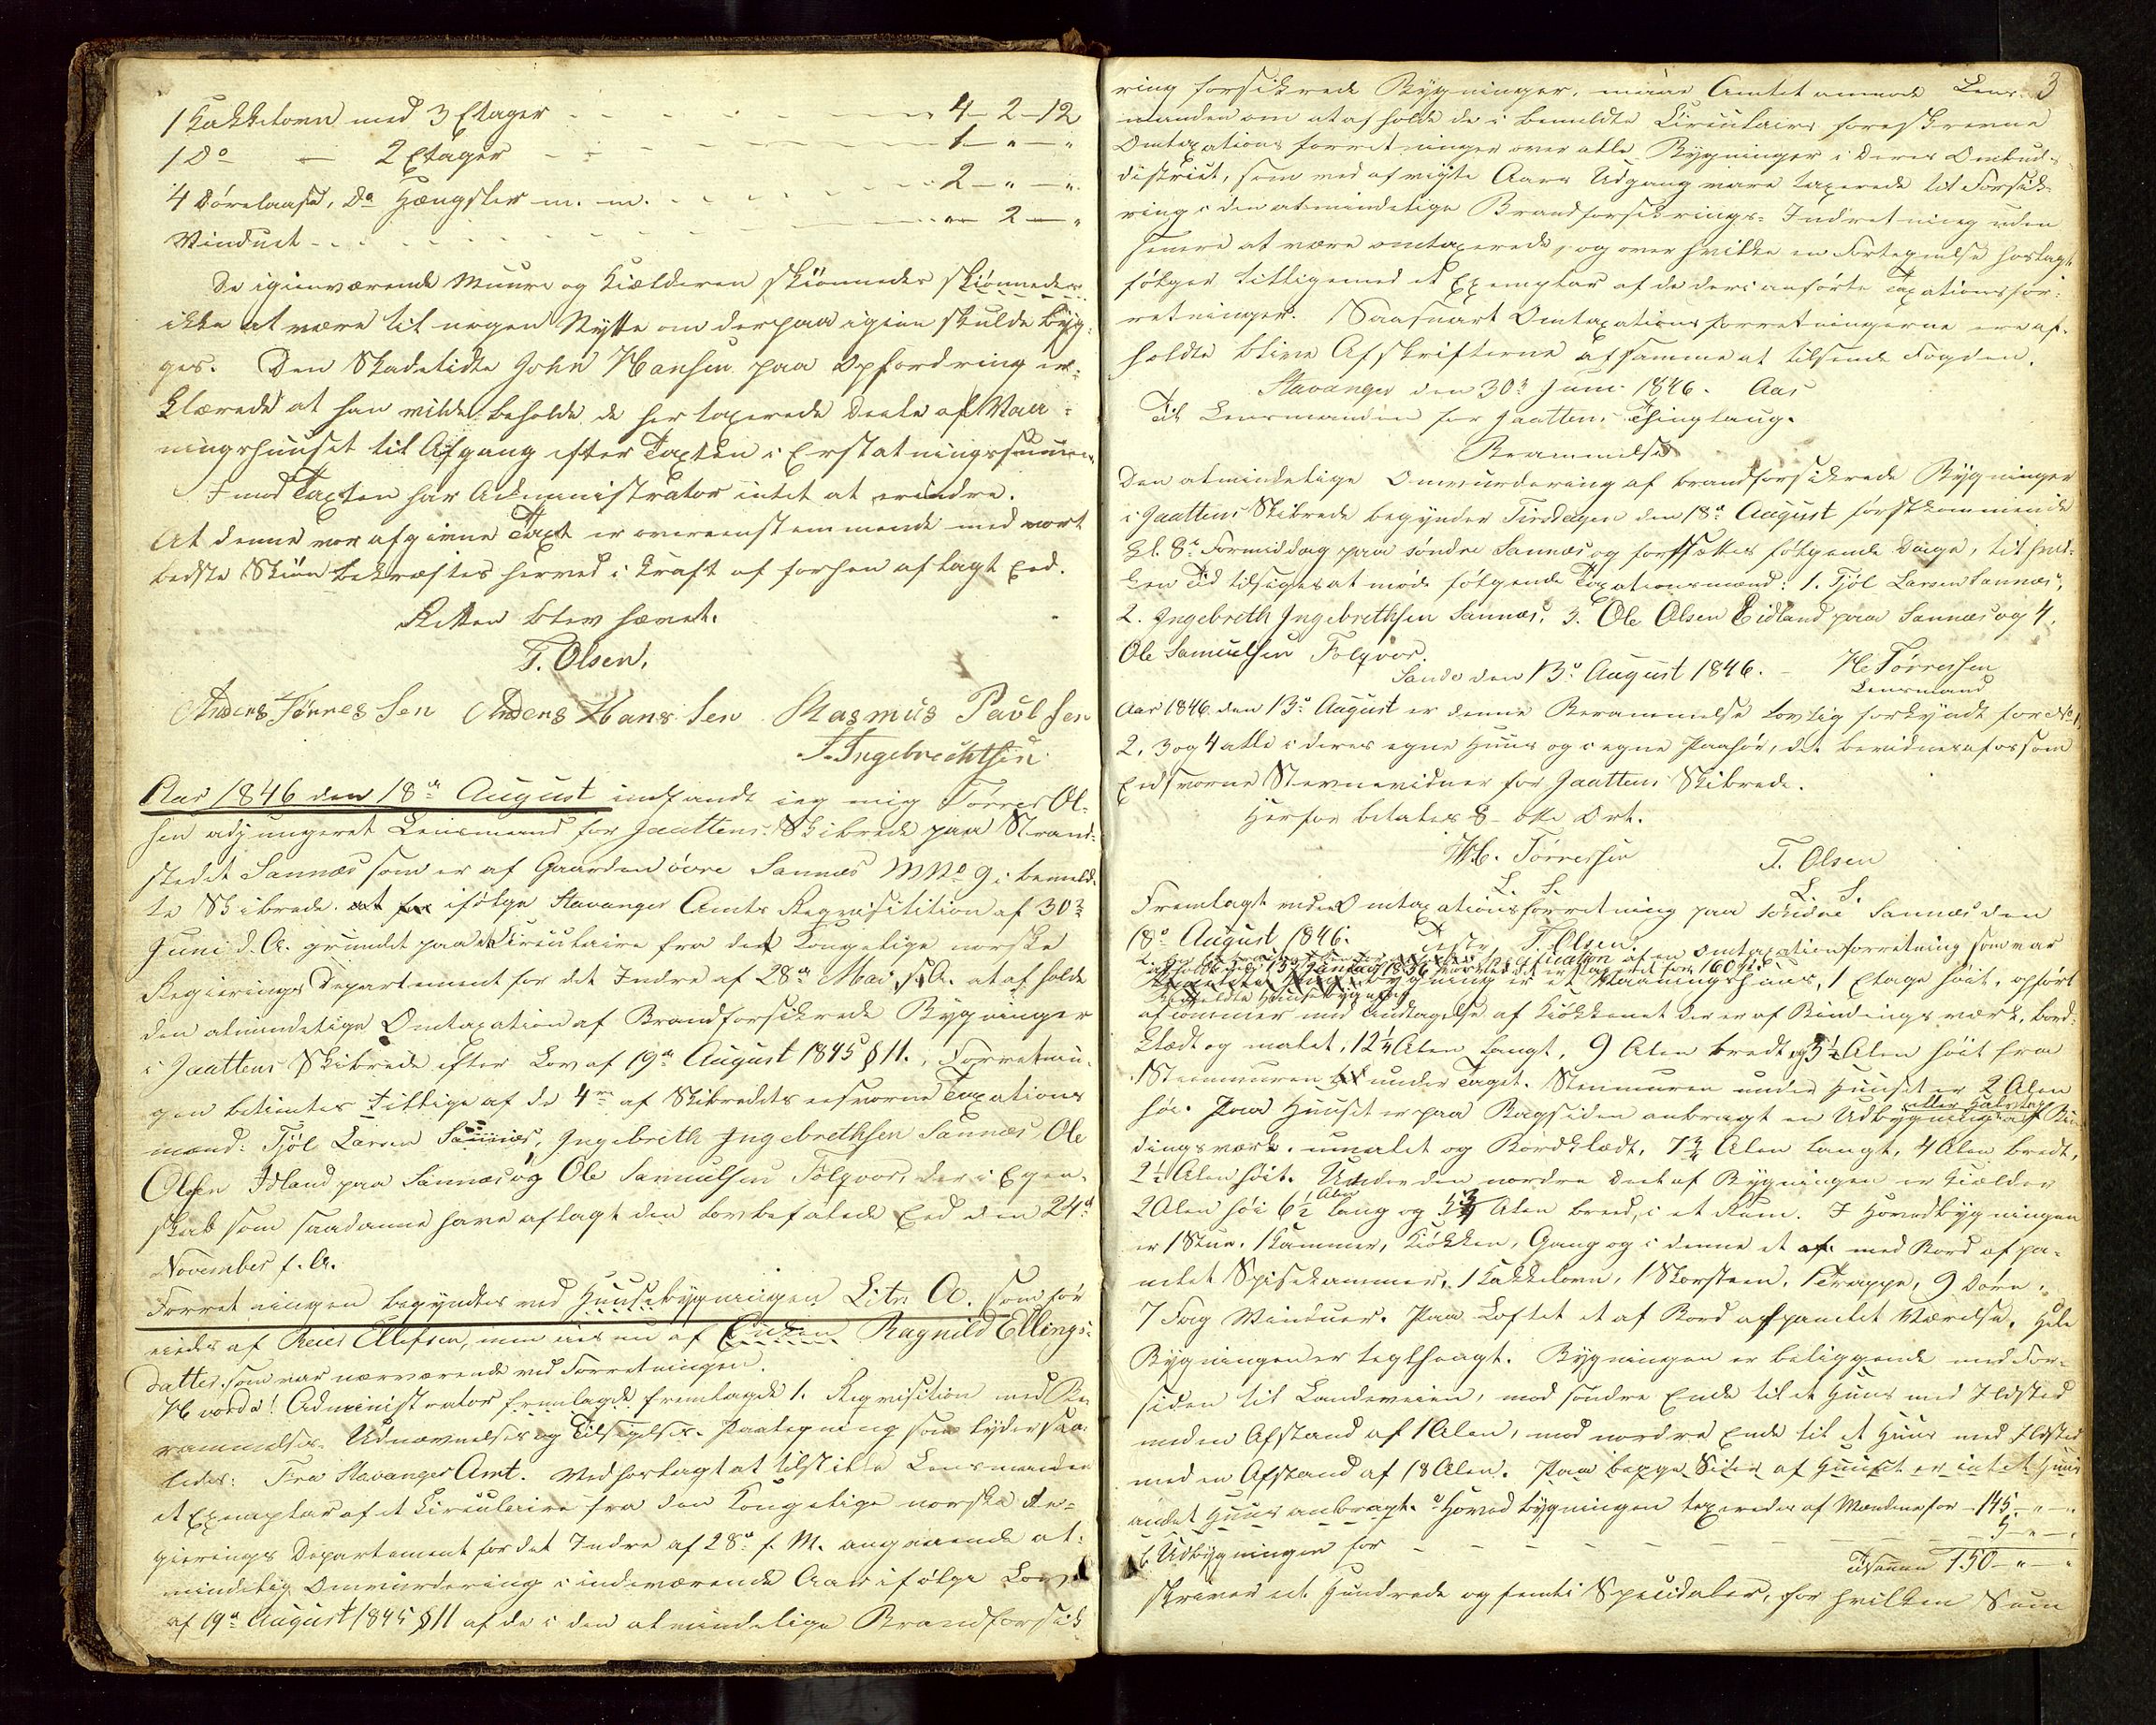 1 Kakkelovn med 3 Etager - - - - - 4 - 2 - 12
1 Do — 2 Etager - - - - - 1 - " - "
4 Dørelaase, Do Hængsler m. m. - - - - 2 - " - "
Vinduet - - - - - " - 2 - "
De igienværende Muure og Kielderen skiønnedes skiønnedes
ikke at være til nogen Nytte om derpaa igien skulde byg-
ges. Den Skadelidte John Hansen paa Opfordring er-
klærede at han vilde beholde de her taxerede Deele af Vaa-
ningshuuset til Afgang efter Taxten i Erstatningssummen
I mod Taxten har Administrator intet at erindre.
At denne vor afgivne Taxt er overeenstemmende med vort
bedste Skiøn bekræftes herved i Kraft af forhen aflagt Eed.
Retten blev hævet.
T. Olsen.
Anders Tønnessen Anders Hansen Rasmus Paulsen
T. Ingebrechtsen
Aar 1846 den 18de August indfandt jeg mig Tørres Ol-
sen adjungeret Lensmand for Jaattens Skibrede paa Strand-
stedet Sannæs som er af Gaarden øvre Sannæs MNo 9 i bemeld-
te Skibrede at for ifølge Stavanger Amts Reqvisitition af 30te
Juni d. A. grundet paa et Circulaire fra det Kongelige norske
Regierings Departement for det Indre af 28de Mai s. A. at afholde
den almindelige Omtaxation af Brandforsikrede Bygninger
i Jaattens Skibrede efter Lov af 19de August 1845 § 11. Forretnin-
gen betientes tillige af de 4re af Skibredets eedsvorne Taxations
mænd: Tjøl Larsen Sannæs, Ingebreth Ingebrethsen Sannæs Ole
Olsen Idland paa Sannæs og Ole Samuelsen Folqvor, der i Egen-
skab som saadanne have aflagt den Lovbefalede Eed den 24de
November f. A.
Forretningen begyndtes ved Huusebygningen Litr. A. som før
eiedes af Reier Ellefsen, men eies nu af Enken Ragnild Ellings-
datter, som var nærværende ved Forretningen.
Hvorda! Administrator fremlagde fremlagde 1. Reqvisition med Be-
rammelses- Udnævnelses og Tilsigelses- Paategning som lyder saa-
ledes: Fra Stavanger Amt. Vedforlagt at tilstille Lensmanden
et Exemplar af et Circulaire fra den Kongelige norske Re-
gierings Departement for det Indre af 28de f. M. angaaende al-
mindelig Omvurdering i indeværende Aar ifølge Lov
af 19de August 1845 § 11 af de i den almindelige Brandforsik-
3
ring forsikrede Bygninger, maae Amtet anmode Lens-
manden om at afholde de i bemeldte Circulaire foreskrevne
Omtaxationsforretninger over alle Bygninger i Deres Ombuds-
district, som ved afvigte Aars Udgang vare taxerede til Forsik-
ring i den almindelige Brandforsikrings-Indretning uden
senere at være omtaxerede, og over hvilke en Fortegnelse hoslagt
følger tilligemed et Exemplar af de deri anførte Taxationsfor-
retninger. Saasnart Omtaxationsforretningerne ere af-
holdte blive Afskrifterne af samme at tilsende Fogden.
Stavanger den 30te Juni 1846. Aas
Til Lensmanden for Jaattens Thinglaug.
Berammelse
Den almindelige Omvurdering af brandforsikrede Bygninger
i Jaattens Skibrede begynder Tirsdagen den 18de August førstkommende
Kl. 8te Formiddag paa søndre Sannæs og fortsættes følgende Dage, til hvil-
ken Tid tilsiges at møde følgende Taxationsmænd: 1. Tjøl Larsen Sannæs,
2. Ingebreth Ingebrethsen Sannæs, 3. Ole Olsen Eidland paa Sannæs og 4.
Ole Samuelsen Folqvor.
Sande den 13de August 1846. H. Tørressen
Lensmand
Aar 1846 den 13de August er denne Berammelse lovlig forkyndt for No 1,
2, 3 og 4 alle i deres egne Huus og i egne Paahør, det bevidnes af os som
Eedsvorne Stevnevidner for Jaattens Skibrede.
Herfor betales 8 - otte Ort.
H. Tørressen T. Olsen
L. S. L. S.
Fremlagt under Omtaxationsforretning paa søndre Sannæs den
18de August 1846. Testr. T. Olsen.
af en Omtaxationforretning som var
afholdt den 15de Januar 1836 hvorved det er taxeret for 160
bygning er et Vaaningshuus, 1 Etage høit, opført
Bemeldte Huusebygning
af tømmer med Undtagelse af Kiøkkenet der er af Bindingsværk, bord-
klædt og malet, 12 1/4 Alen langt, 9 Alen bredt og 3 1/2 Alen høit fra
Steenmuren til under Taget. Steenmuren under Huuset er 2 Alen
høi. Paa Huuset er paa Bagsiden anbragt en Udbygning eller Halvtag af Bin-
dingsværk, umalet og Bordklædt, 7 3/4 Alen langt, 4 Alen bredt,
2 1/2 Alen høit. Under den nordre Deel af Bygningen er Kielder
2 Alen høi 6 1/2 Alen lang og Alen breed, i et Rum. I Hovedbygningen
er 1 Stue, 1 Kammer, Kiøkken, Gang og i denne et af med Bord afpa-
nelet Spisekammer, 1 Kakkelovn, 1 Skorsteen, 1 Trappe, 9 Døre,
7 Fag Vinduer. Paa Loftet et af Bord afpanelet Værelse. Hele
Bygningen er teglhængt. Bygningen er beliggende med For-
siden til Landeveien, mod søndre Ende til et Huus med Ildsted
med en Afstand af 1 Alen, mod nordre Ende til et Huus med Ildsted
med en Afstand af 18 Alen. Paa begge Sider af Huuset er intet Huus
andet Huus anbragt. a Hovedbygningen taxeredes af Mændene for - 145 - " - "
b. Udbygningen for - - - - - 5 - " - "
Tilsamen 150 - " - "
skriver eet Hundrede og femti Speciedaler, for hvilken Sum